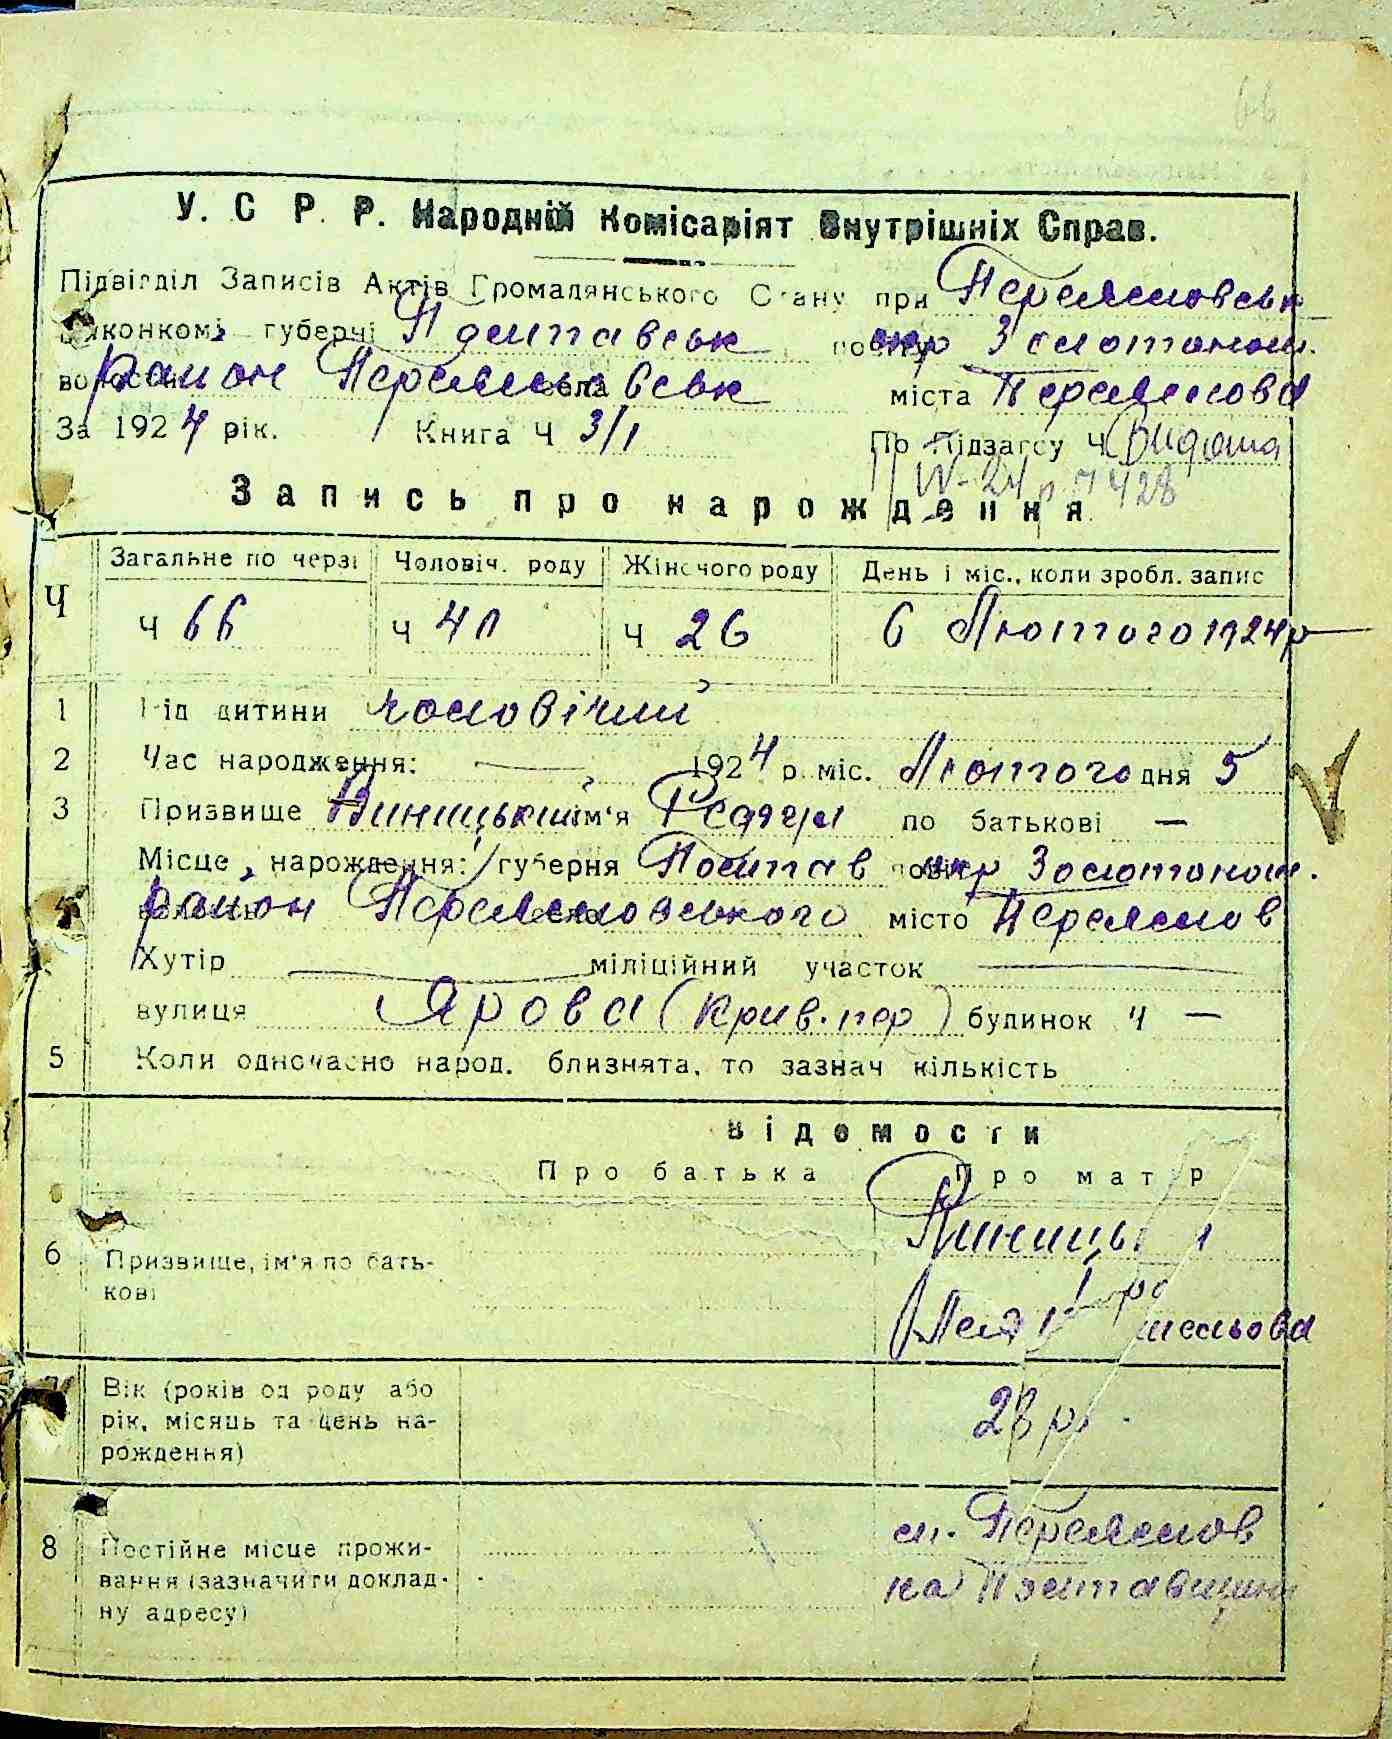 66
У. С Р. Р. Народній Комісаріят Внутрішніх Справ.
Підвідділ Записів Актів Громадянського Стану при Переяславськ
виконкомі губерні Полтавськ окр Золотонош.
район Переяславськ міста Переяслова
За 1924 рік. Книга Ч 3/1 По Підзагсу Ч
Запись про нарождення
Ч Загальне по черзі Чоловіч. роду Жіночого роду День і міс., коли зробл. запис
ч 66 ч 40 ч 26 6 Лютого 1924р
1 Рід дитини чоловічий
2 Час народження: — 1924 р. міс. Лютого дня 5
3 Призвище ім'я по батькові —
Місце нарождення: губерня Полтав окр Золотонош.
4 район Переясловського місто Переяслов
Хутір — міліційний участок —
вулиця Ярова (Крив. пер) будинок ч —
5 Коли одночасно народ. близнята, то зазнач кількість
Відомости
Про батька Про матір
6 Призвище, ім'я по бать-
кові
7 Вік (років од роду або 28 р.
рік, місяць та день на-
рождення)
8 Постійне місце прожи- м. Переяслов
вання (зазначити доклад- на Полтавщині
ну адресу)